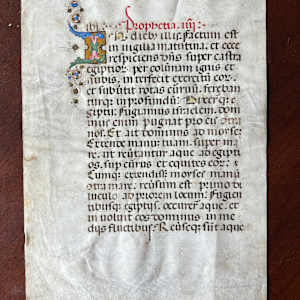 Prophetia. iiij.
In diebus illis. factum est
in uigilia matutina. et ecce
respiciens dn̄s super castra
egiptior̄ per columnam ignis et
nubis. interfecit exercitū eor̄.
et subūtit rotas curruū. fereban
turq: in profundū. Dixer̄t q:
egiptij. fugiamus israelem. domi
nus enim pugnat pro eis ōtra
nos. Et ait dominus ad moysē:
Extende manū tuam super ma
re. ut reūtantur aque ad egipti
os. sup currus et equites eor̄.
Cumq: extendisset moyses manū
ōtra mare. reūsum est primo di
luculo ad priorem locum. Fugien
tibusq: egiptijs. occurrer̄t aque. et
inuoluit eos dominus in me
dijs fluctibus. Reūseq: sūt aque